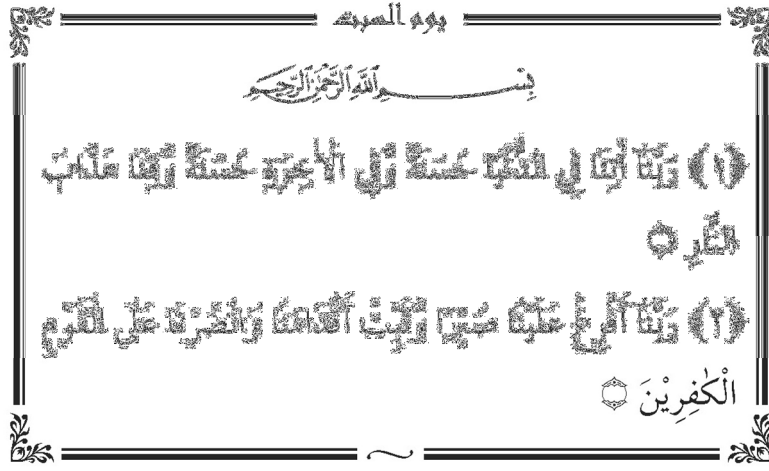 يوم السبت
بِسْمِ اللَّهِ الرَّحْمَٰنِ الرَّحِيمِ
﴿١﴾ رَبَّنَا آتِنَا فِي الدُّنْيَا حَسَنَةً وَّفِي الْاٰخِرَةِ حَسَنَةً وَّقِنَا عَذَابَ
النَّارِ ۝
﴿٢﴾ رَبَّنَا أَفْرِغْ عَلَيْنَا صَبْرًا وَّثَبِّتْ أَقْدَامَنَا وَانْصُرْنَا عَلَى الْقَوْمِ
الْكٰفِرِيْنَ ۝